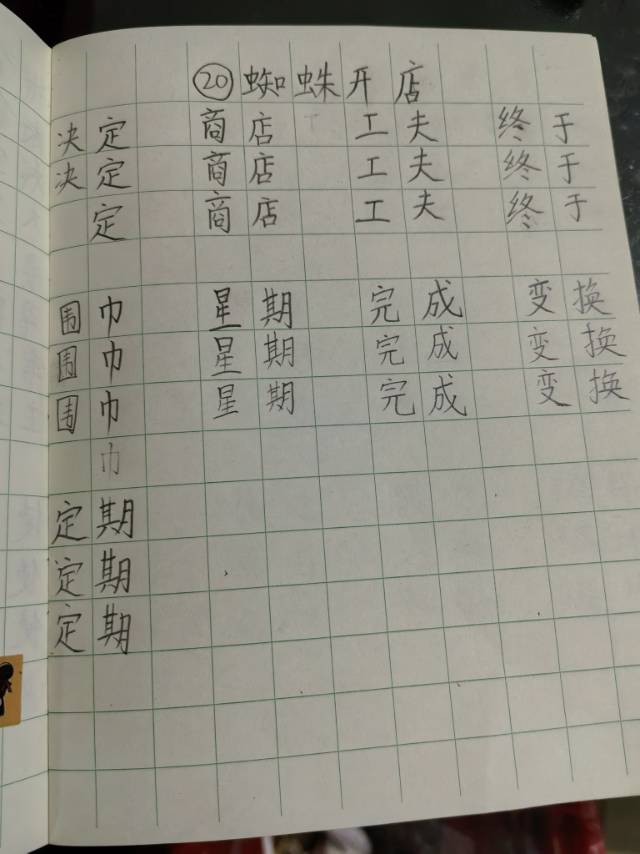 ⑳蜘蛛开店
决定 商店 工夫 终于
决定 商店 工夫 终于
定 商店 工夫 终于
围巾 星期 完成 变换
围巾 星期 完成 变换
围巾 星期 完成 变换
巾
定期
定期
定期